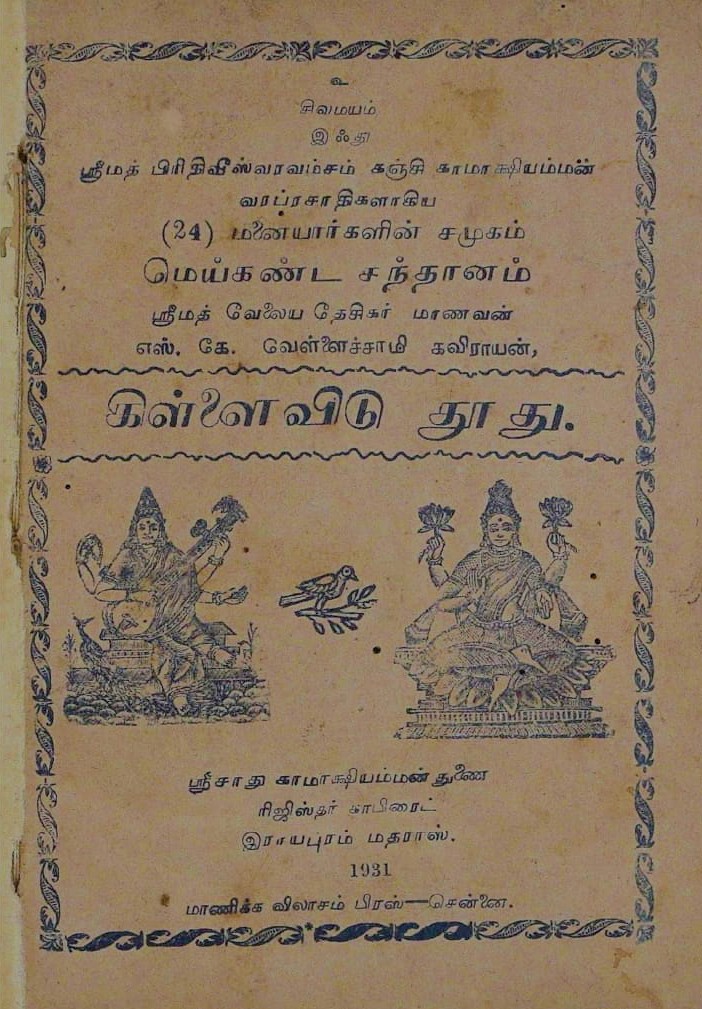 உ
சிவமயம்
இஃது
ஸ்ரீமத் பிரிதிவீஸ்வரவம்சம் கஞ்சி காமாக்ஷியம்மன்
வரப்ரசாதிகளாகிய
(24) மனையார்களின் சமுகம்
மெய்கண்ட சந்தானம்
ஸ்ரீமத் வேலைய தேசிகர் மாணவன்
எஸ். கே. வெள்ளைச்சாமி கவிராயன்,
கிள்ளைவிடு தூது.
ஸ்ரீசாது காமாக்ஷியம்மன் துணை
ரிஜிஸ்தர் காபிரைட்
இராயபுரம் மதராஸ்.
1931
மாணிக்க விலாசம் பிரஸ்—சென்னை.